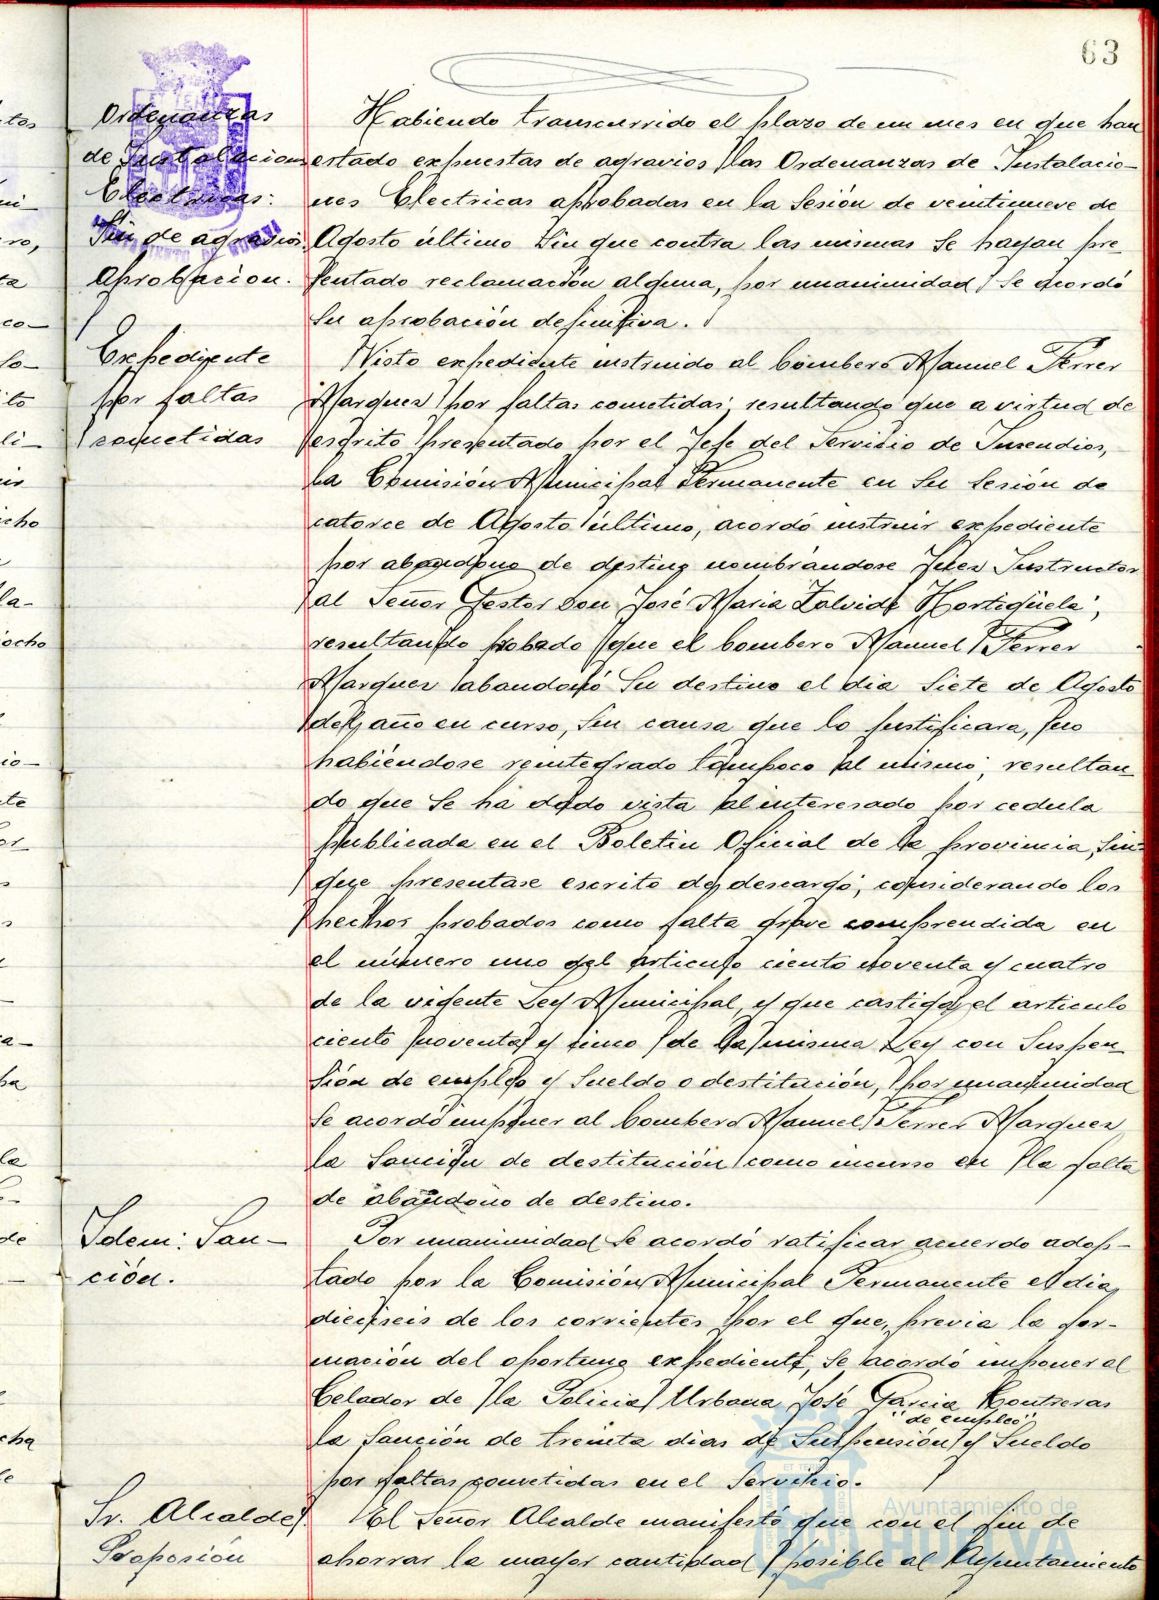 63
Ordenanzas
de Instalaciones
Electricas:
Sin de agravios.
Aprobacion.
Habiendo transcurrido el plazo de un mes en que han
estado expuestas de agravios las Ordenanzas de Instalacio-
nes Electricas aprobadas en la Sesión de veintinueve de
Agosto último Sin que contra las mismas se hayan pre-
sentado reclamación alguna, por unanimidad se acordó
su aprobación definitiva.
Expediente
por faltas
cometidas
Visto expediente instruido al bombero Manuel Ferrer
Marquez por faltas cometidas; resultando que a virtud de
escrito presentado por el Jefe del Servicio de Incendios,
la Comisión Municipal Permanente en su Sesión de
catorce de Agosto último, acordó instruir expediente
por abandono de destino nombrándose Juez Instructor
al Señor Gestor Don José Maria Zalvide Hortigüela;
resultando probado que el bombero Manuel Ferrer
Marquez abandonó su destino el dia siete de Agosto
del año en curso, sin causa que lo justificara, no
habiéndose reintegrado tampoco al mismo; resultan
do que se há dado vista al interesado por cedula
publicada en el Boletin Oficial de la provincia, sin
que presentase escrito de descargo; considerando los
hechos probados como falta grave comprendida en
el número uno del articulo ciento noventa y cuatro
de la vigente Ley Municipal, y que castiga el articulo
ciento noventa y cinco de la misma Ley con Suspen-
sión de empleo y Sueldo o destitución, por unanimidad
se acordó imponer al bombero Manuel Ferrer Marquez
la Sanción de destitución como incurso en la falta
de abandono de destino.
Idem: San-
ción.
Por unanimidad se acordó ratificar acuerdo adop-
tado por la Comisión Municipal Permanente el dia
dieciseis de los corrientes por el que, previa la for-
mación del oportuno expediente, se acordó imponer al
Celador de la Policia Urbana José Garcia Contreras
"de empleo"
la Sanción de treinta dias de Suspensión y Sueldo
por faltas cometidas en el Servicio.
Sr. Alcalde.
Proposión
El Señor Alcalde manifestó que con el fin de
ahorrar la mayor cantidad posible al Ayuntamiento
Ayuntamiento de
HUELVA